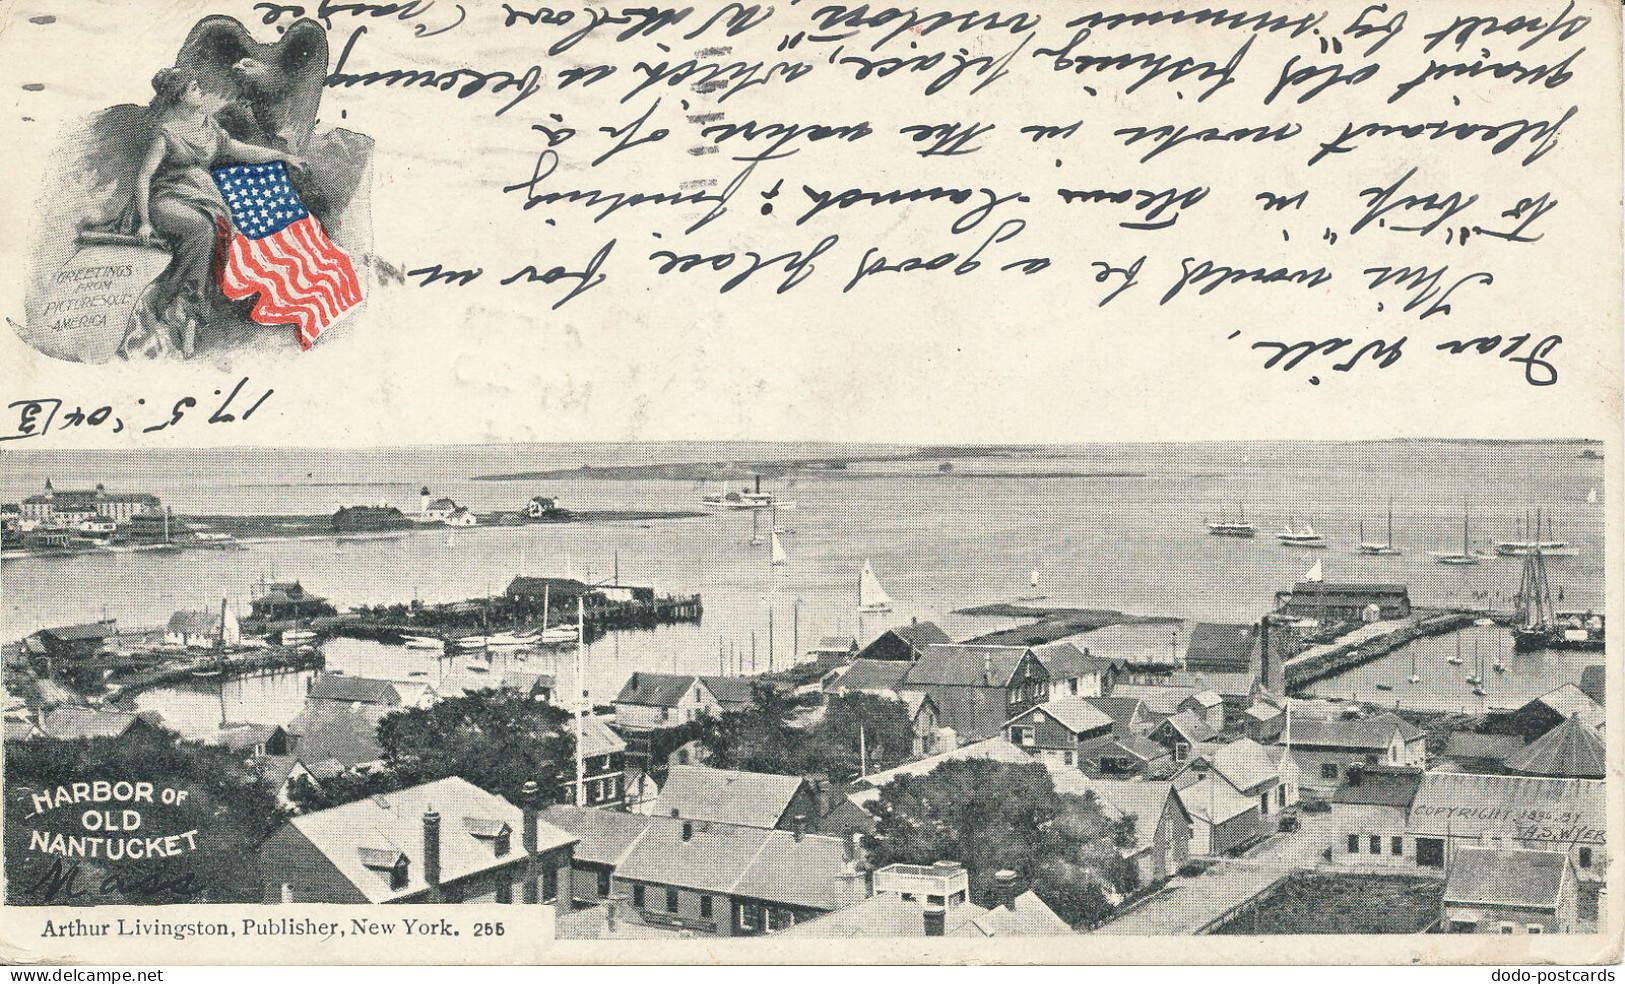 "GREETINGS
FROM
PICTURESQUE
AMERICA
17.5.'04
Dear Will,
This would be a good place for us
to "trip" in steam-launch; finding
pleasant water in the nature of a
quaint old fishing place, which is becoming
spoilt by "summer visitors", W
HARBOR OF
OLD
NANTUCKET
Mass
COPYRIGHT 189 BY
H.S. WYER
Arthur Livingston, Publisher, New York. 255
dodo-postcards